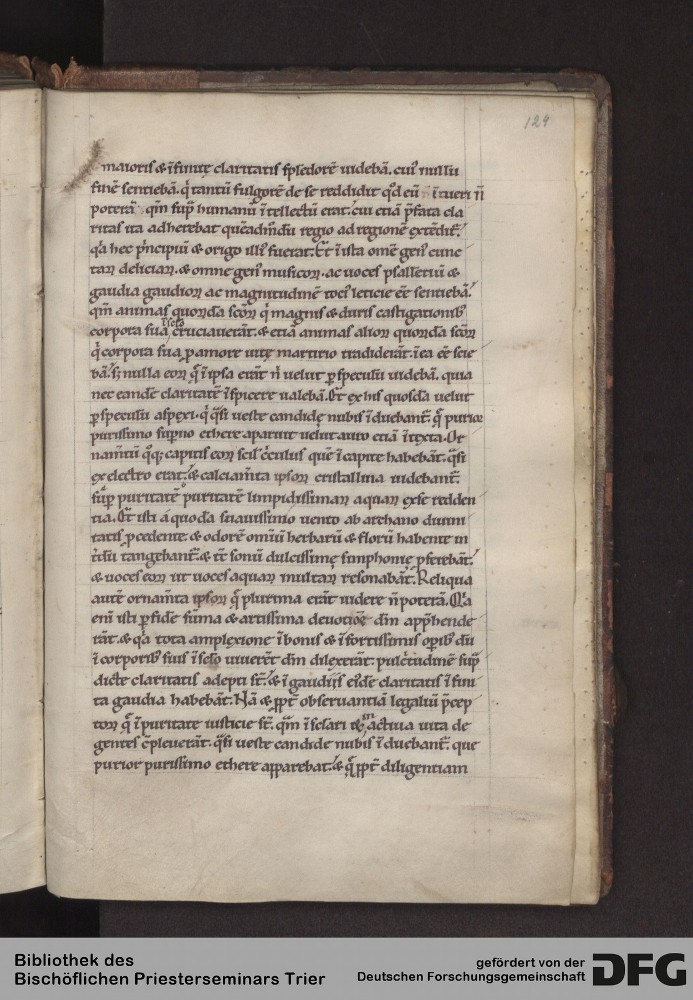 129
maioris & ĩfinitę claritatis splẽdorẽ uidebã. cui᷒ nullũ
finẽ sentiebã. q̇ tantũ fulgorẽ de se reddidit q̇d eũ ĩtueri ñ
poterã. qm̃ sup̃ humanũ ĩtellectũ erat. cui etiã p̃fata cla
ritas ita adherebat quẽadm̃dũ regio ad regionẽ extẽdit̃.
q̇a hec p̃ncipiũ & origo illi᷒ fuerat. Et̃ ĩ ista omẽ gen᷒ cunc
taꝝ deliciaꝝ. & omne gen᷒ musicoꝝ. ac uoces psallẽtiũ &
gaudia gaudioꝝ ac magnitudinẽ toci᷒ leticie eẽ sentiebã.
qm̃ animas quorũdã scõꝝ q̇ magnis & duris castigationib᷒
corpora sua ĩ sclo cruciauerãt. & etiã animas alioꝝ quorũdã scõꝝ
q̇ corpora sua p̱ amore uitę martirio tradiderãt. ĩ ea eẽ scie
bã. s; nulla eoꝝ q̃ ĩ ipsa erãt ñ uelut p̱ speculũ uidebã. quia
nec eandẽ claritatẽ ĩspicere ualebã. Et̃ ex his quosdã uelut
p̱ speculũ aspexi. q̇ q̃si ueste candidę nubis ĩduebant̃. q̃ purior
purissimo supno ethere aparuit uelut auro etiã ĩtexta. Or
nam̃tũ q̇q; capitis eoꝝ scil᷒ c̃culus quẽ ĩ capite habebãt. q̃si
ex electro erat. & calciam̃ta ipsoꝝ cristallina uidebant̃.
sup̱ puritatẽ puritatẽ limpidissimaꝝ aquaꝝ ex se redden
tia. Et̃ isti a quodã suauissimo uento ab archano diuini
tatis p̱cedente. & odorẽ om̃iũ herbarũ & florũ habente in
tdũ tangebant̃. & tc̃ sonũ dulcissimę simphonię pferebãt.
& uoces eoꝝ ut uoces aquaꝝ multaꝝ resonabãt. Reliqua
autẽ ornam̃ta ipsoꝝ q̃ plurima erãt uidere ñ poterã. Q̇a
enĩ isti p̱ fidẽ sũma & artissima deuotiõe dm̃ app̃hende
rãt. & q̇a tota amplexione ĩ bonis & ĩ fortissimis opib᷒ dũ
ĩ corporib᷒ suis ĩ sclo uiuerẽt dm̃ dilexerãt. pulc̃tudinẽ sup̃
dictę claritatis adepti st̃. & ĩ gaudiis ei᷒dẽ claritatis ĩfini
ta gaudia habebãt. Nã & p̱pt̃ obseruantiã legaliũ p̃cep
toꝝ q̃ ĩ puritate iusticie st̃. qm̃ ĩ sclari & actiua uita de
gentes c̃pleuerãt. q̃si ueste candidę nubis ĩduebant̃. que
purior purissimo ethere apparebat. & q̃ p̱pt̃ diligentiam
Bibliothek des
Bischöflichen Priesterseminars Trier
gefördert von der
Deutschen Forschungsgemeinschaft
DFG